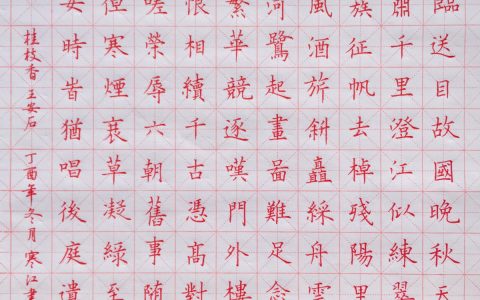 臨送目故國晚秋天
肅千里澄江似練翠
簇征帆去棹殘陽里
風酒旂斜矗綵舟雲
河鷺起畫啚難足念
繁華競逐嘆門外樓
恨相續千古憑高對
嗟榮辱六朝舊事随
寒煙衰草凝綠至
女時旹猶唱後庭遺
桂枝香 王安石 丁酉年冬月寒江書